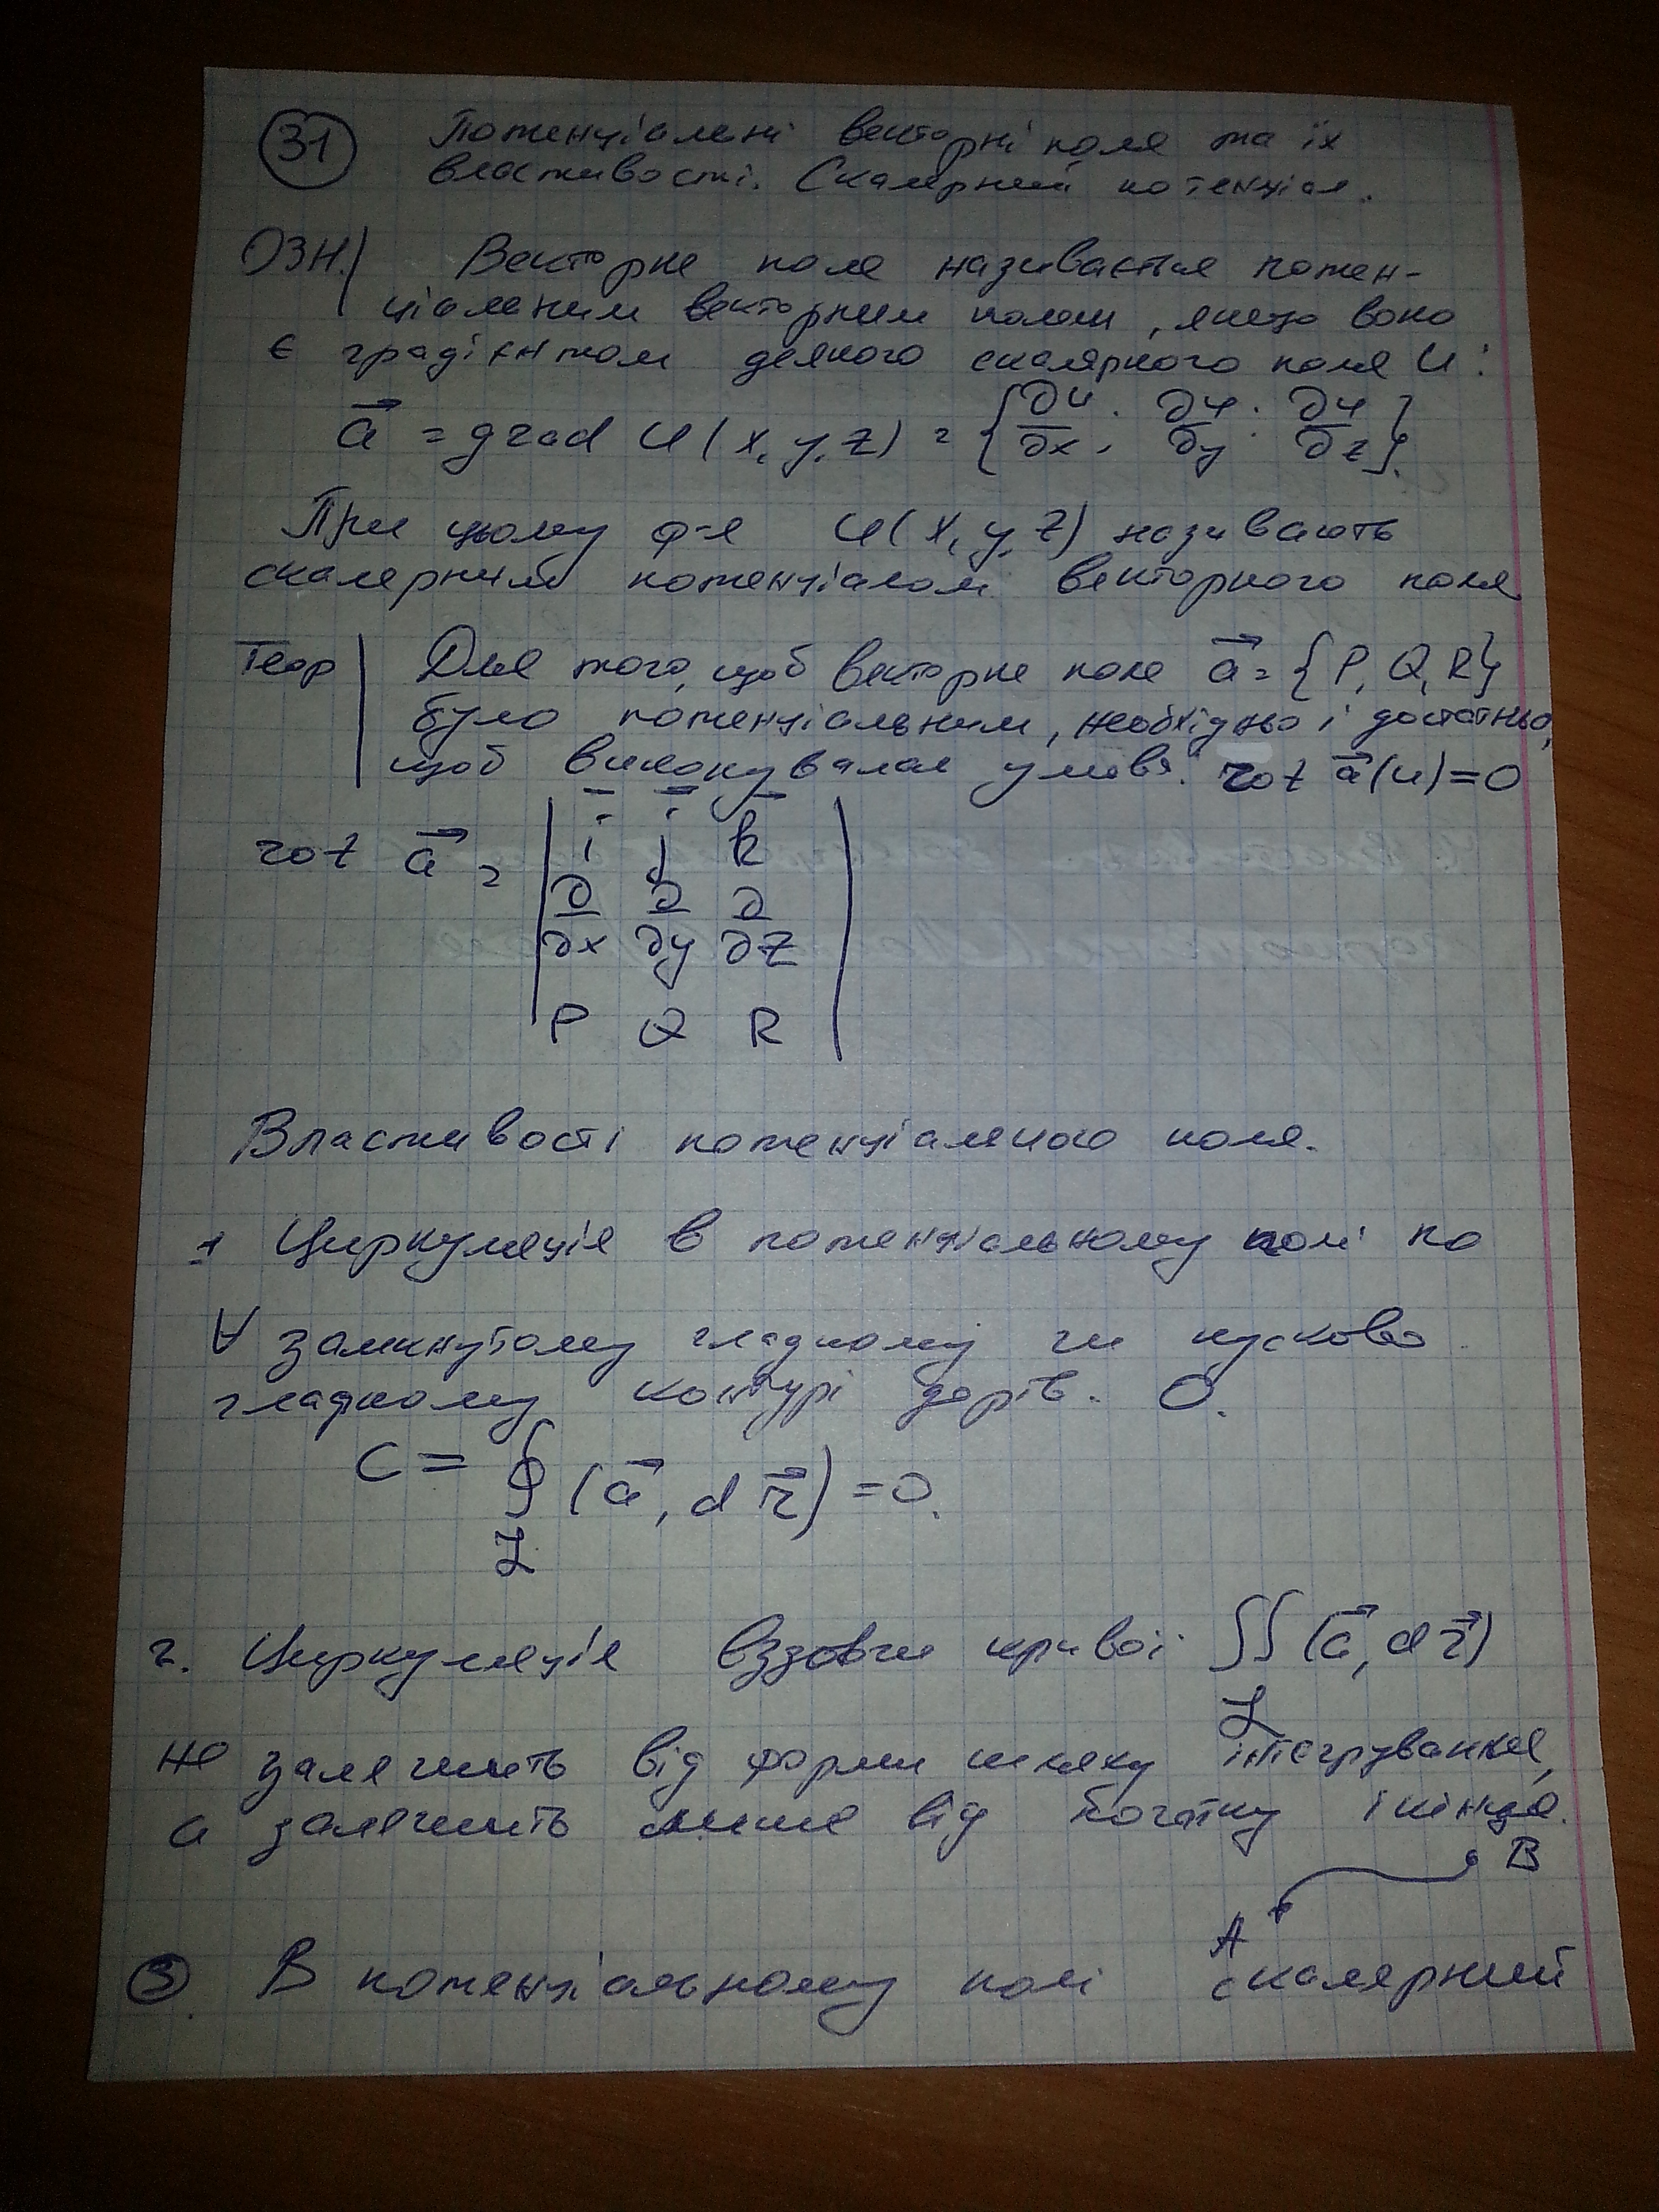 31 Потенціальні векторні поля та їх
властивості. Скалярний потенціал.
ОЗН. Векторне поле називається потен-
ціальним векторним полем, якщо воно
є градієнтом деякого скалярного поля U:
a⃗ = grad U(x, y, z) = {∂u/∂x, ∂u/∂y, ∂u/∂z}.
При цьому ф-я U(x, y, z) називають
скалярним потенціалом векторного поля
Теор Для того, щоб векторне поле a⃗ = {P, Q, R}
було потенціальним, необхідно і достатньо,
щоб виконувалася умова: rot a⃗(u) = 0
rot a⃗ = | i j k |
| ∂/∂x ∂/∂y ∂/∂z |
| P Q R |
Властивості потенціального поля.
1 Циркуляція в потенціальному полі по
∀ замкнутому гладкому чи кусково
гладкому контурі дорів. 0.
C = ∮ (a⃗, d r⃗) = 0.
L
2. Циркуляція вздовж кривої ∬ (a⃗, d r⃗)
L
не залежить від форми шляху інтегрування,
а залежить лише від початку і кінця.
B
A
3. В потенціальному полі скалярний